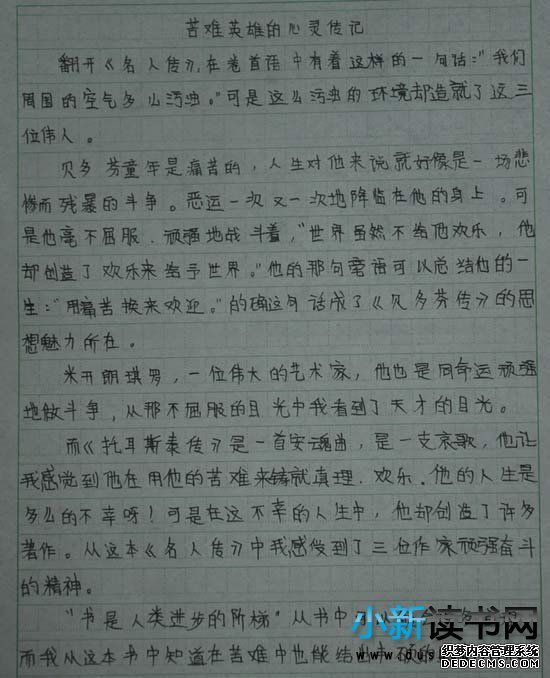 苦难英雄的心灵传记
翻开《名人传》,在卷首语中有着这样的一句话:"我们
周围的空气多么污浊。"可是这么污浊的环境却造就了这三
位伟人。
贝多芬童年是痛苦的,人生对他来说就好像是一场悲
惨而残暴的斗争。恶运一次又一次地降临在他的身上。可
是他毫不屈服.顽强地战斗着,"世界虽然不给他欢乐,他
却创造了欢乐来给予世界。"他的那句豪语可以总结他的一
生:"用痛苦换来欢迎。"的确这句话成了《贝多芬传》的思
想魅力所在。
米开朗琪罗,一位伟大的艺术家,他也是同命运顽强
地做斗争,从那不屈服的目光中我看到了天才的目光。
而《托耳斯泰传》是一首安魂曲,是一支哀歌,他让
我感觉到他在用他的苦难来铸就真理.欢乐.他的人生是
多么的不幸呀!可是在这不幸的人生中,他却创造了许多
著作。从这本《名人传》中我感受到了三位作家顽强奋斗
的精神。
"书是人类进步的阶梯"从书中可以
而我从这本书中知道在苦难中也能结出
小新读书网
织梦内容管理系统
DEDECMS.COM